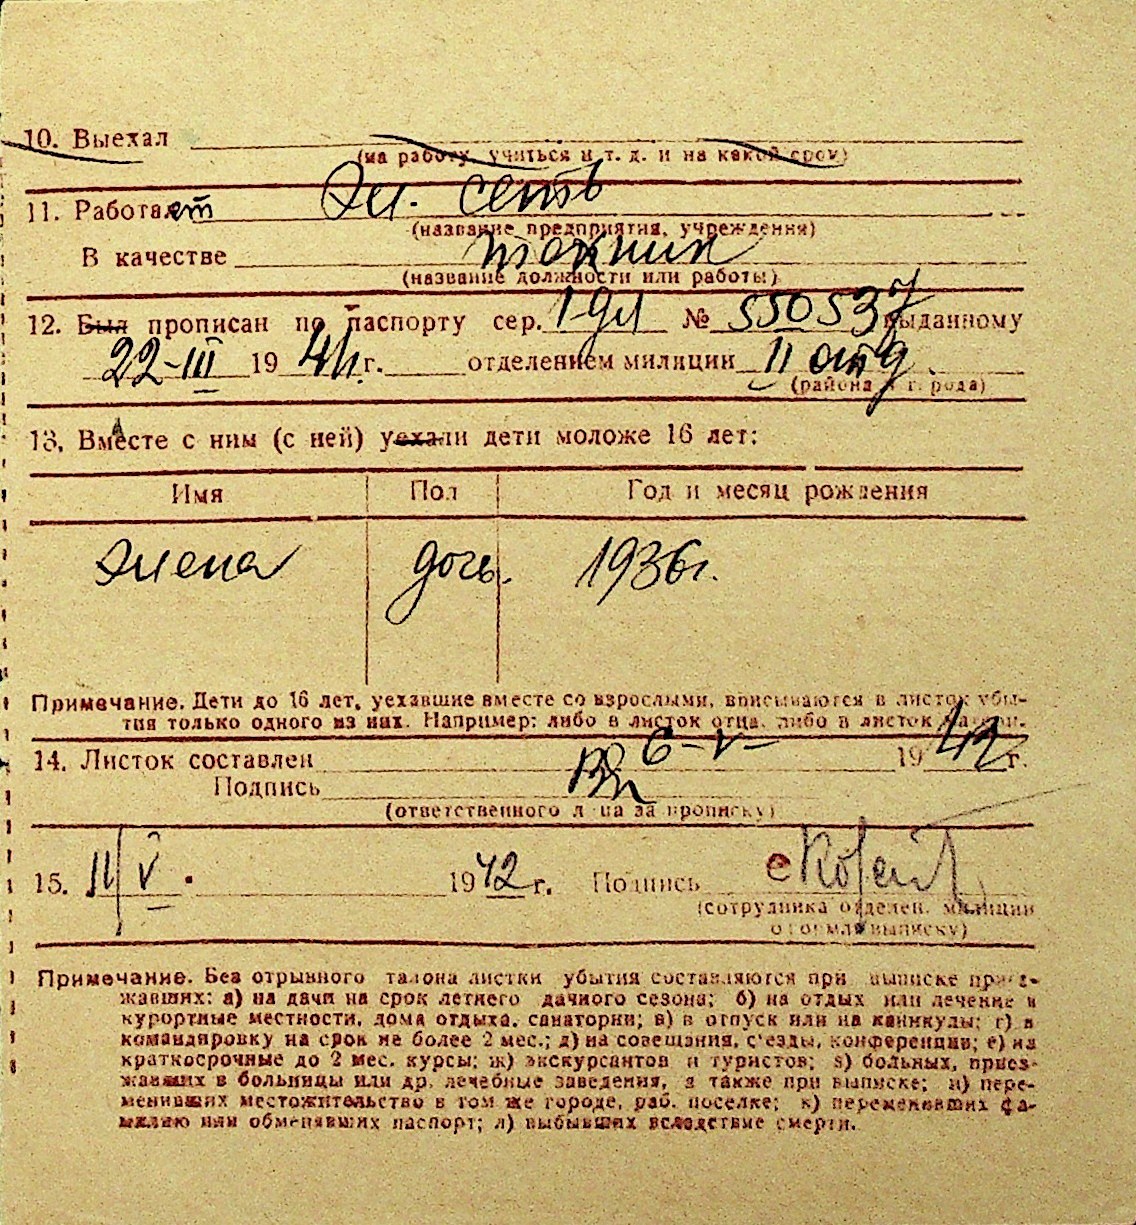 10. Выехал
(на работу, учиться и т. д. и на какой срок)
11. Работает Эл. сеть
(название предприятия, учреждения)
В качестве техник
(название должности или работы)
12. Был прописан по паспорту сер. 1 № 550537 выданному
22-III 1941 г. отделением милиции 11 отд.
(района и города)
13. Вместе с ним (с ней) уехали дети моложе 16 лет:
Имя Пол Год и месяц рождения
Элена дочь. 1936 г.
Примечание. Дети до 16 лет, уехавшие вместе со взрослыми, вписываются в листок убы-
тия только одного из них. Например: либо в листок отца, либо в листок матери.
14. Листок составлен 6-V- 1942 г.
Подпись
(ответственного лица за прописку)
15. 11/V 1942 г. Подпись
(сотрудника отделен. милиции
оформл. выписку)
Примечание. Без отрывного талона листки убытия составляются при выписке приез-
жавших: а) на дачи на срок летнего дачного сезона; б) на отдых или лечение в
курортные местности, дома отдыха, санатории; в) в отпуск или на каникулы; г) в
командировку на срок не более 2 мес.; д) на совещания, с'езды, конференции; е) на
краткосрочные до 2 мес. курсы; ж) экскурсантов и туристов; з) больных, приез-
жавших в больницы или др. лечебные заведения, а также при выписке; и) пере-
менивших местожительство в том же городе, раб. поселке; к) переменивших фа-
милию или обменявших паспорт; л) выбывших вследствие смерти.